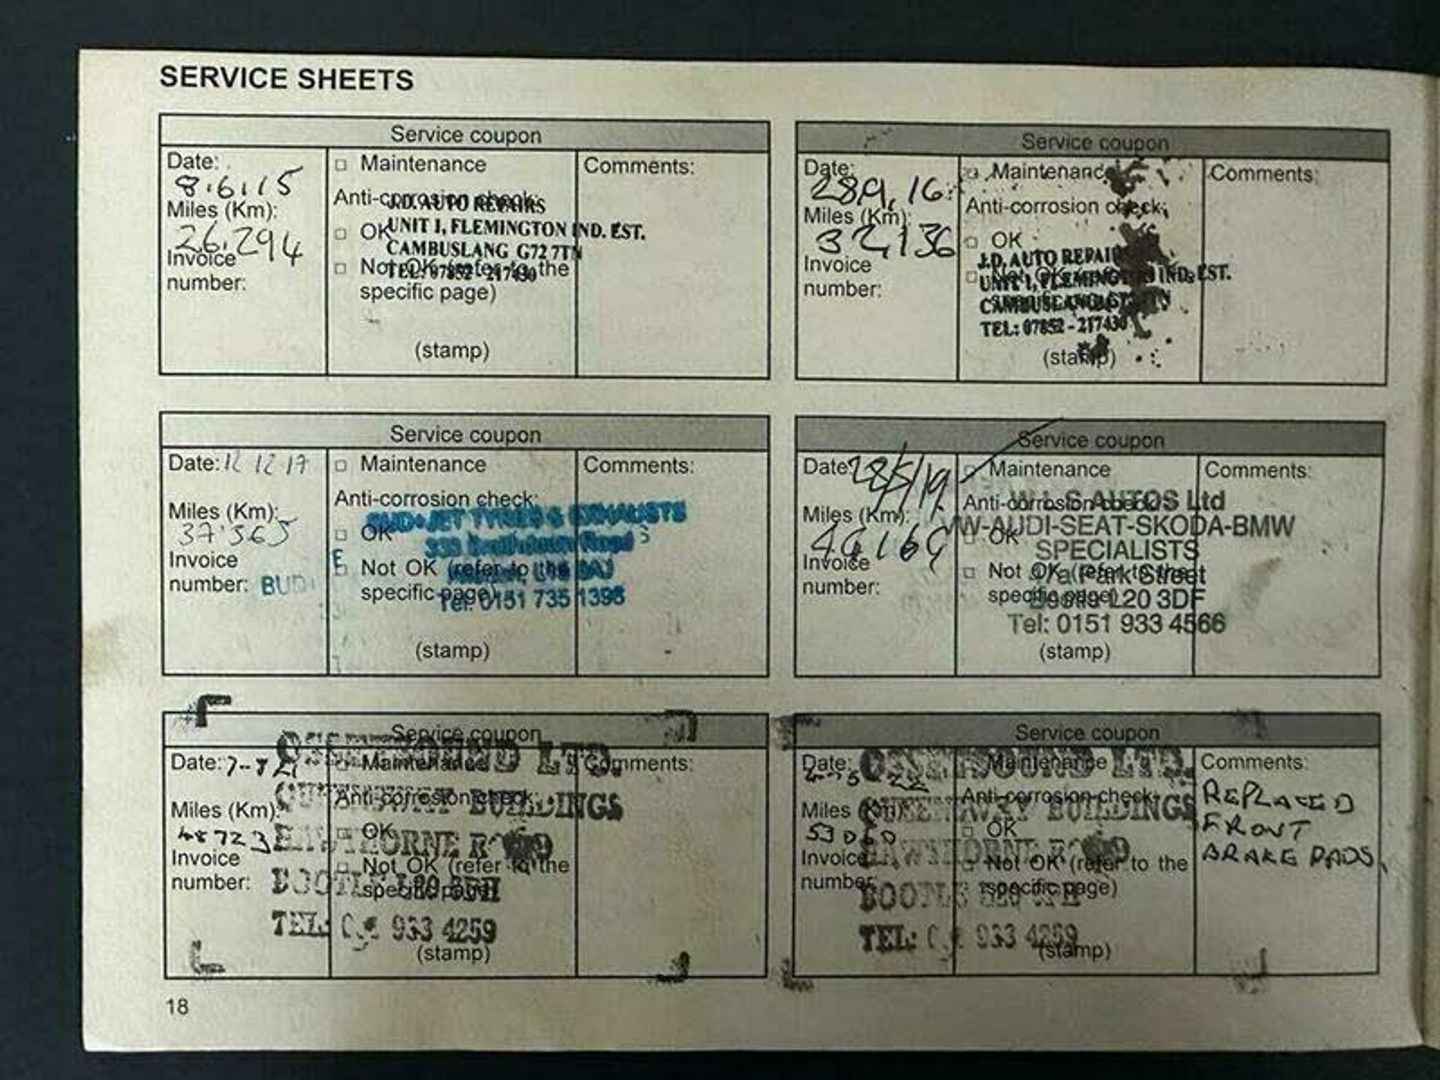 SERVICE SHEETS
Service coupon
Date:
8.6.15
Miles (Km):
26.294
Invoice
number:
□ Maintenance
Anti-corrosion check:
□ OK
□ Not OK (refer to the
specific page)
(stamp)
J.D. AUTO REPAIRS
UNIT 1, FLEMINGTON IND. EST.
CAMBUSLANG G72 7TN
TEL: 07852 - 217430
Comments:
Service coupon
Date:
28.9.16
Miles (Km):
32,136
Invoice
number:
□ Maintenance
Anti-corrosion check:
□ OK
J.D. AUTO REPAIRS
UNIT 1, FLEMINGTON IND. EST.
CAMBUSLANG G72 7TN
TEL: 07852 - 217430
(stamp)
Comments:
Service coupon
Date: 12 12 17
Miles (Km):
37'365
Invoice
number: BUD
□ Maintenance
Anti-corrosion check:
□ OK
□ Not OK (refer to the
specific page)
(stamp)
JET TYRES & EXHAUSTS
Tel: 0151 735 1396
Comments:
Service coupon
Date: 28/5/19
Miles (Km):
Invoice
number:
□ Maintenance
Anti-corrosion check:
□ OK
□ Not OK (refer to the
specific page)
(stamp)
AUTOS Ltd
VW-AUDI-SEAT-SKODA-BMW
SPECIALISTS
Park Street
Bootle L20 3DF
Tel: 0151 933 4566
Comments:
Service coupon
Date: 7-8 21
Miles (Km):
48723
Invoice
number:
□ Maintenance
Anti-corrosion check:
□ OK
□ Not OK (refer to the
specific page)
(stamp)
LTD.
BUILDINGS
HAWTHORNE ROAD
BOOTLE L20
TEL: 933 4259
Comments:
Service coupon
Date:
22
Miles (Km):
53060
Invoice
number:
□ Maintenance
Anti-corrosion check:
□ OK
□ Not OK (refer to the
specific page)
(stamp)
LTD.
BUILDINGS
HAWTHORNE ROAD
BOOTLE L20
TEL: 933 4259
Comments:
REPLACED
FRONT
BRAKE PADS.
18